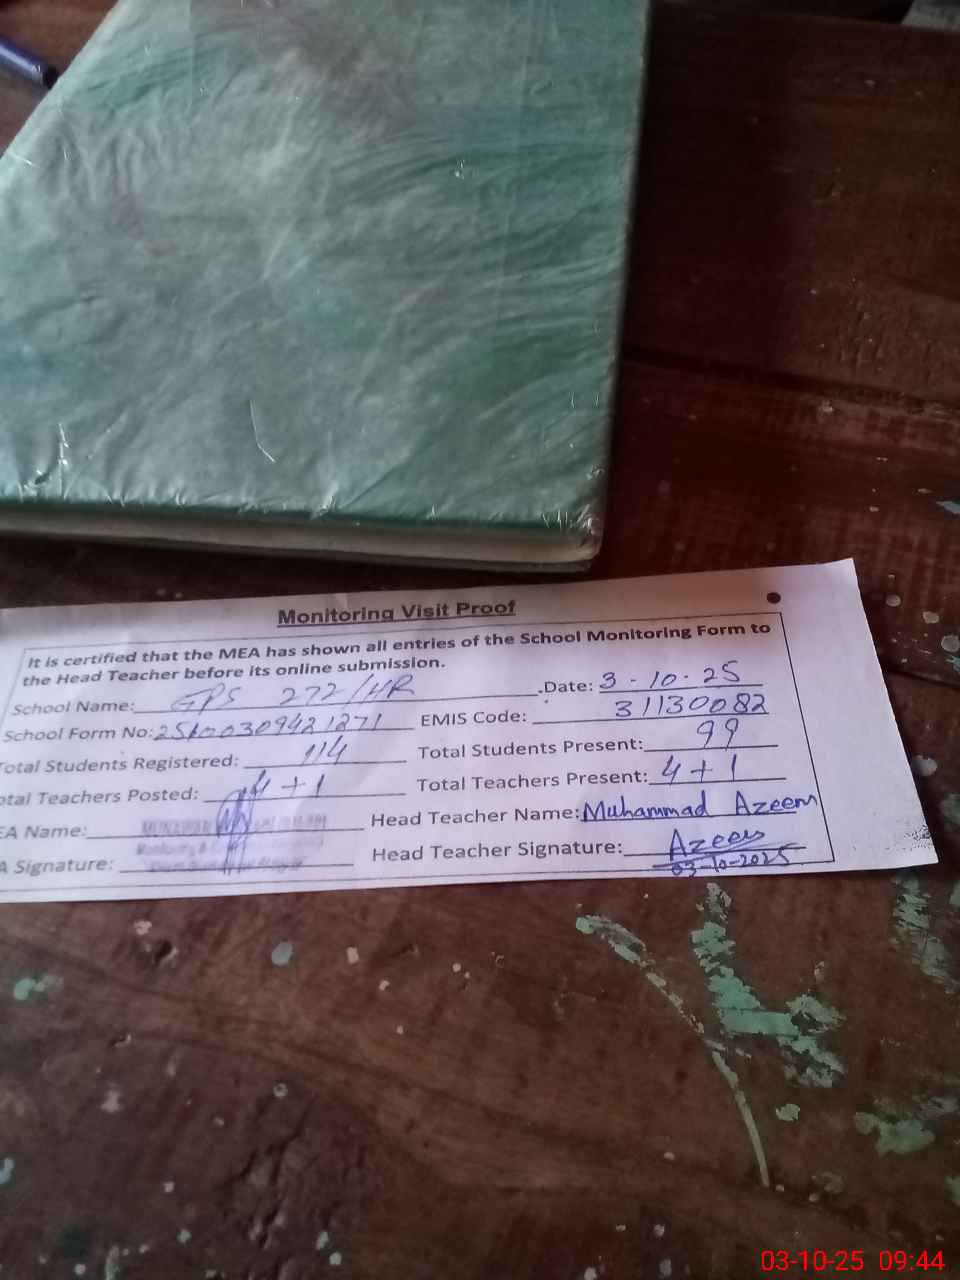 Monitoring Visit Proof
It is certified that the MEA has shown all entries of the School Monitoring Form to
the Head Teacher before its online submission.
School Name: GPS 272/HR Date: 3-10-25
School Form No: EMIS Code: 31130082
Total Students Registered: 114 Total Students Present: 99
otal Teachers Posted: 4+1 Total Teachers Present: 4+1
EA Name: Head Teacher Name: Muhammad Azeem
A Signature: Head Teacher Signature: Azeem
03-10-2025
03-10-25 09:44